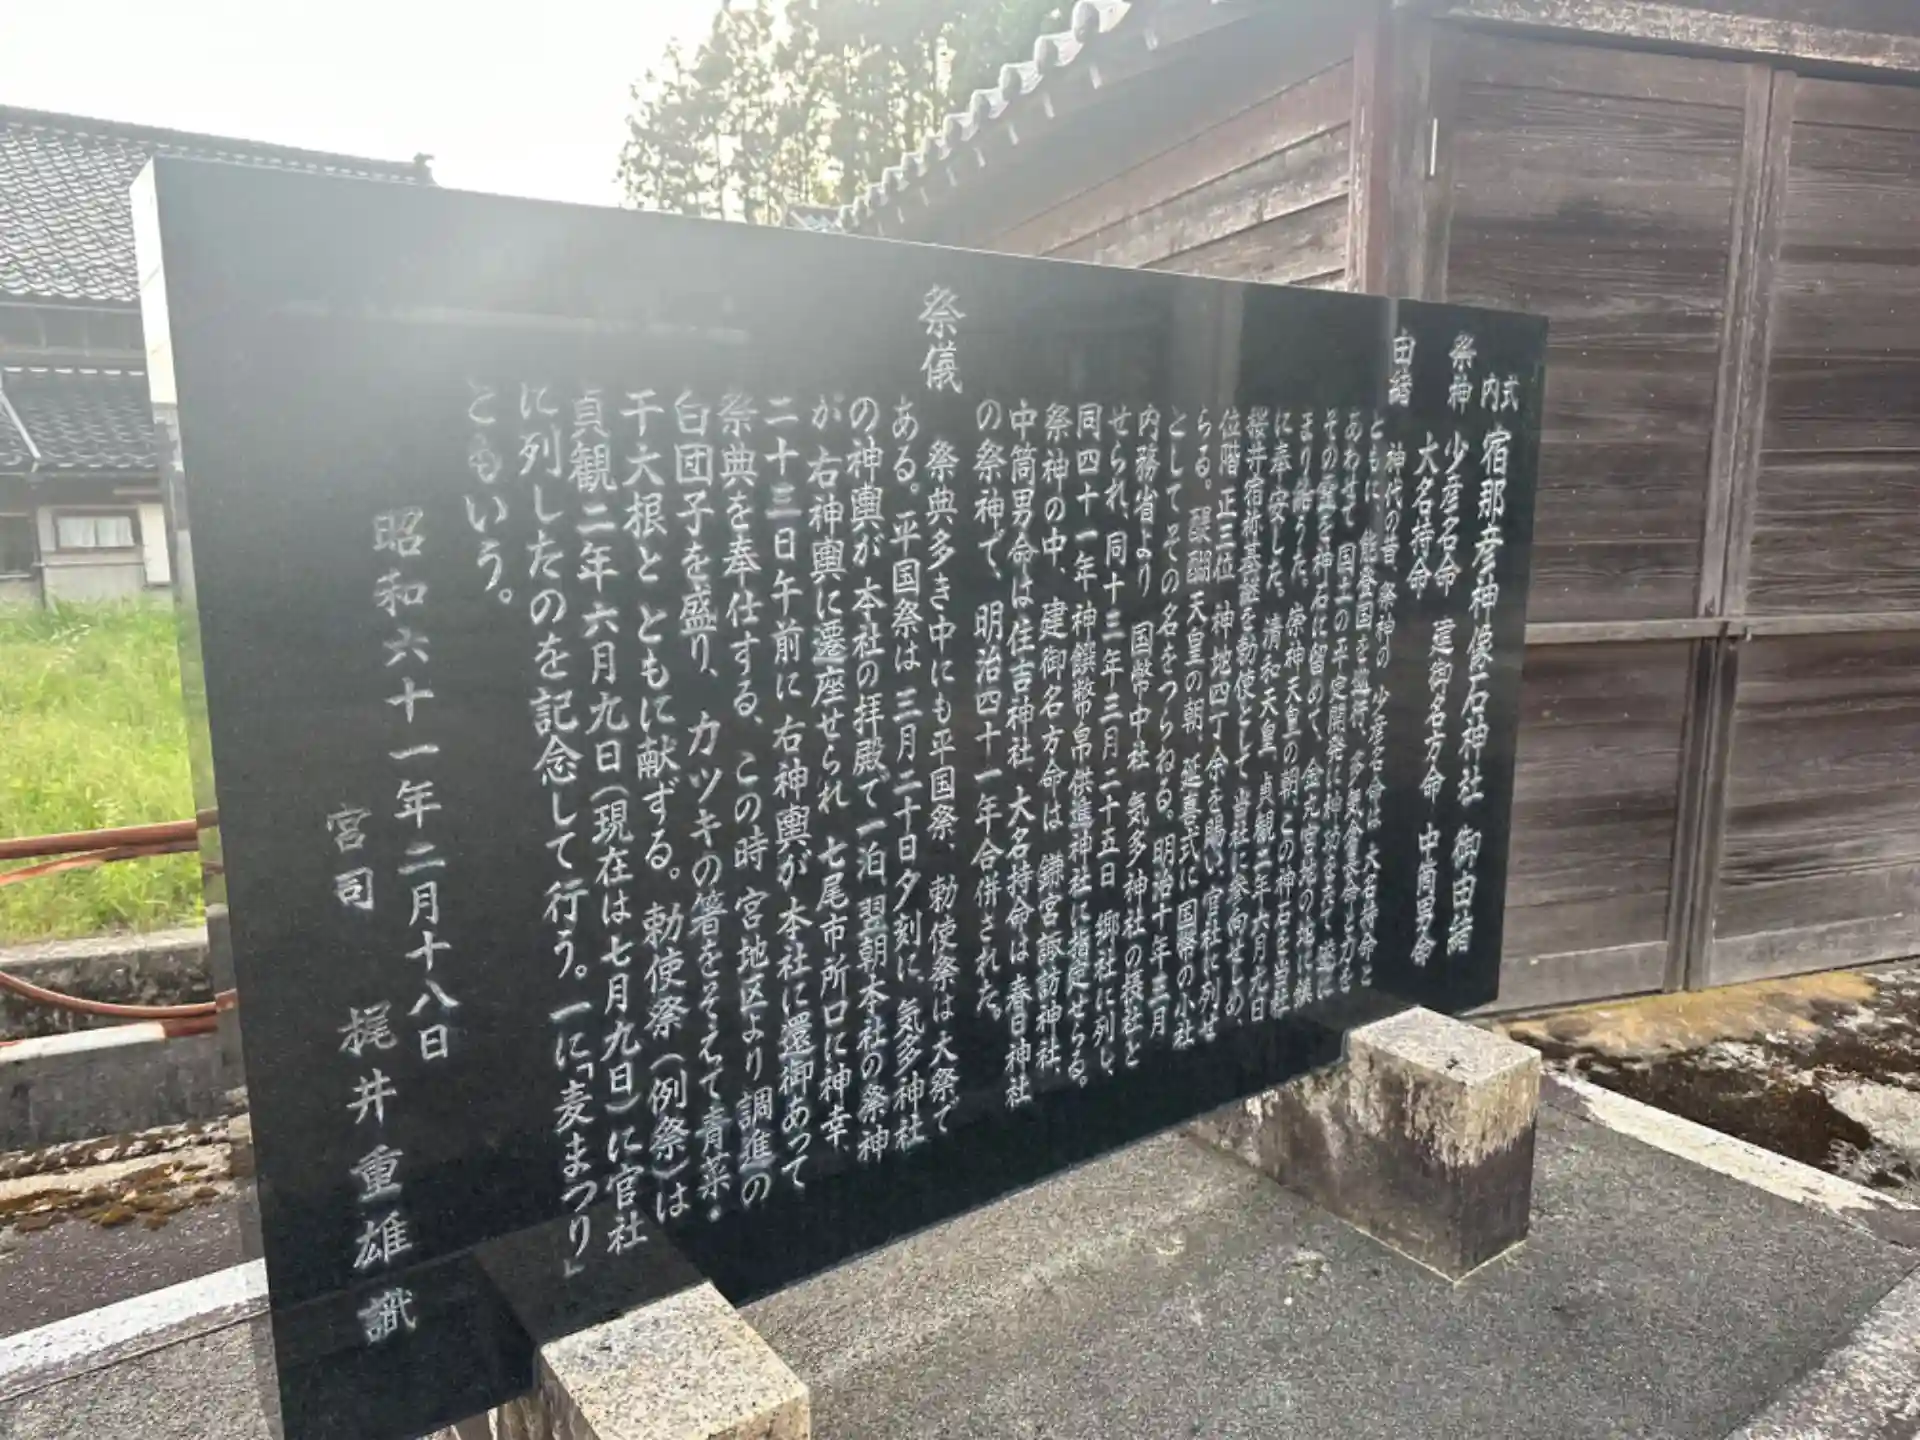 式内 宿那彦神像石神社 御由緒
祭神 少彦名命 建御名方命 中筒男命
大名持命
由緒 神代の昔、祭神の 少彦名命は 大名持命と
ともに、能登国を巡行、多気倉長命と力を
あわせて 国土の平定開発に神功をたて 遂に
その霊を神石に留めて、金丸宮地の地に鎮
まり給うた。 崇神天皇の朝、この神石を当社
に奉安した。清和天皇 貞観二年六月九日
桜井宿祢基証を勅使として 当社に参向せしめ、
位階 正三位 神地四丁余を賜い、官社に列せ
らる。 醍醐天皇の朝、延喜式に国幣の小社
として その名をつらねる。明治十年三月
内務省より 国幣中社 気多神社の摂社と
せられ、同十三年三月二十五日 郷社に列し、
同四十一年神饌幣帛供進神社に指定せらる。
祭神の中、建御名方命は 鎌宮諏訪神社、
中筒男命は住吉神社、大名持命は春日神社
の祭神で、明治四十一年合併された。
祭儀 祭典多き中にも平国祭、勅使祭は大祭で
ある。平国祭は 三月二十日夕刻に、気多神社
の神輿が本社の拝殿で一泊 翌朝本社の祭神
が右神輿に遷座せられ 七尾市所口に神幸、
二十三日午前に右神輿が本社に還御あって
祭典を奉仕する、この時 宮地区より 調進の
白団子を盛り、カツキの箸をそえて青菜・
干大根と ともに献ずる。勅使祭(例祭)は
貞観二年六月九日(現在は七月九日)に官社
に列したのを記念して行う。一に「麦まつり」
ともいう。
昭和六十一年二月十八日
宮司 梶井重雄 識